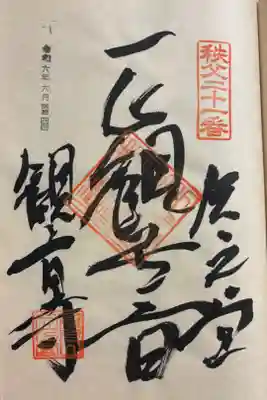 秩父二十一番
矢之堂
一仏観世音
令和六年六月
観音寺